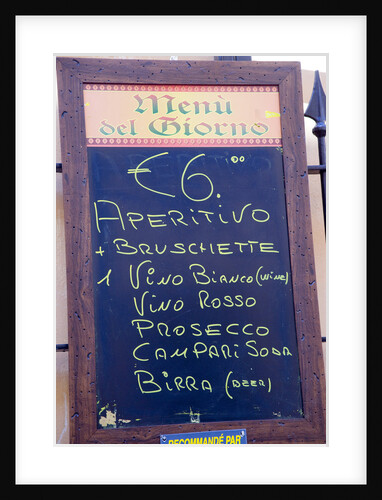 Menù
del Giorno
€6.00
APERITIVO
+ BRUSCHETTE
1 VINO BIANCO (WINE)
VINO ROSSO
PROSECCO
CAMPARI SODA
BIRRA (BEER)
RECOMMANDÉ PAR